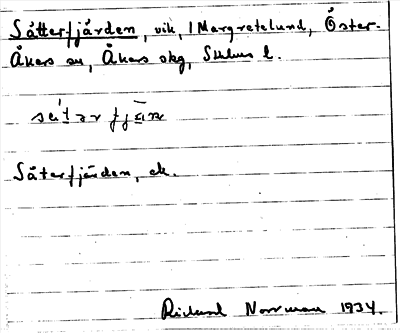 Såtterfjärden, vik, 1 Margretelund, Öster-
Åkers sn, Åkers skg, Sthlms l.
Såterfjärden, ek.
Rickard Norrman 1934.